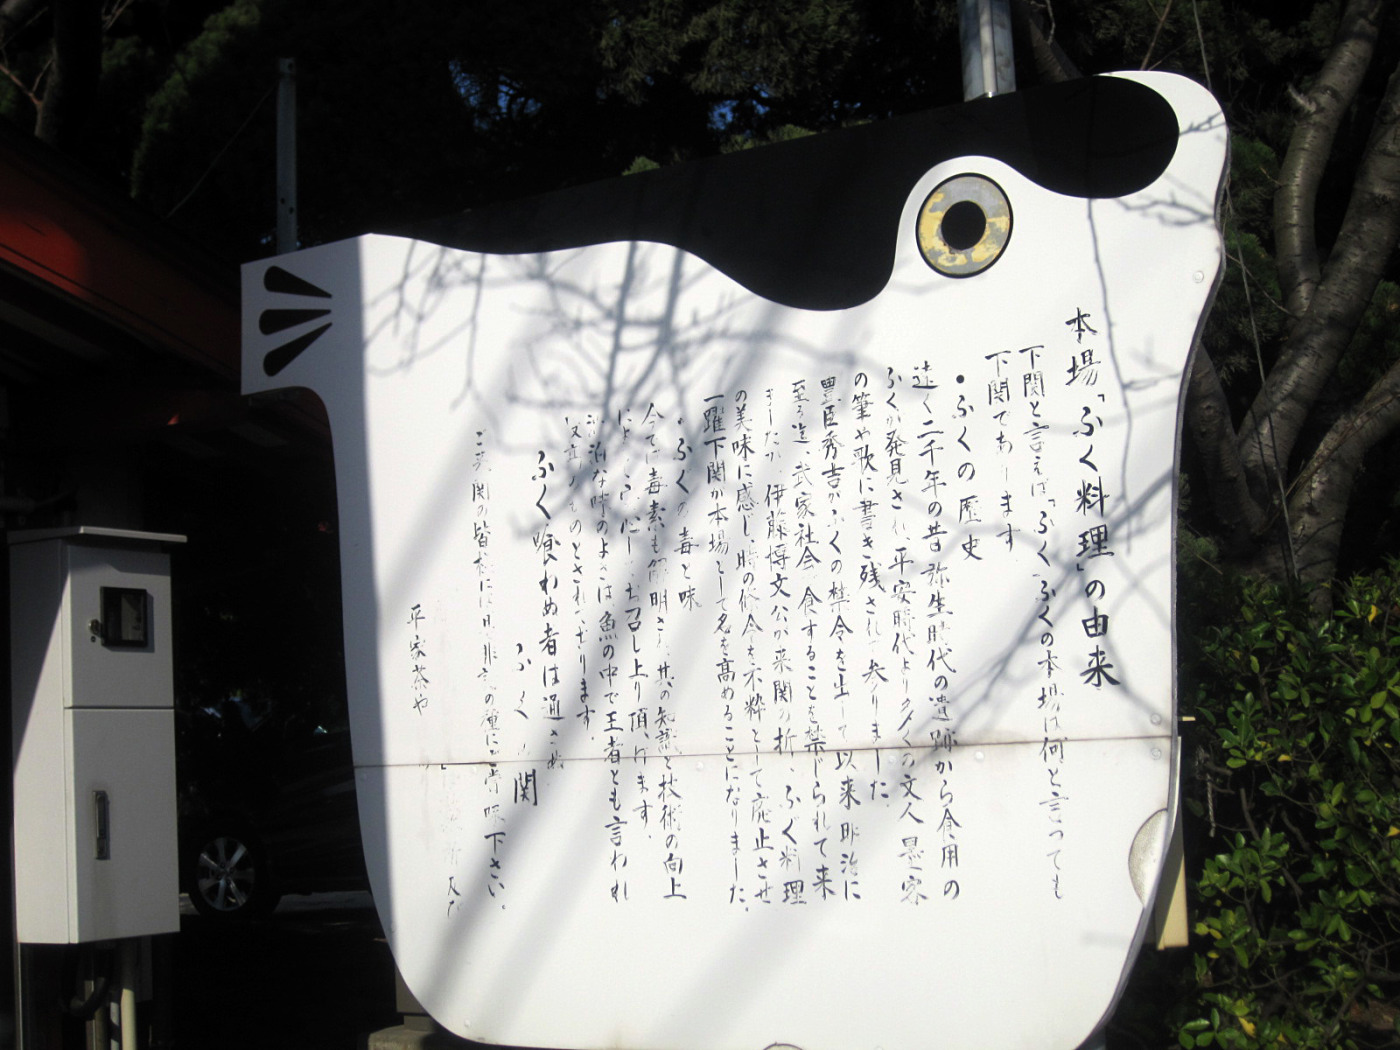 本場「ふく料理」の由来
下関と言えば「ふく」ふくの本場は何と言っても
下関であります
・ふくの歴史
遠く二千年の昔弥生時代の遺跡から食用の
ふくが発見され、平安時代より多くの文人墨客
の筆や歌に書き残されて参りました
豊臣秀吉がふくの禁令を出して以来明治に
至る迄、武家社会で食することを禁じられて来
ましたが、伊藤博文公が来関の折、ふく料理
の美味に感じ、時の修令を不粋として廃止させ
一躍下関が本場として名を高めることになりました。
・ふくの毒と味
今では毒素も解明され、其の知識と技術の向上
により安心してお召し上り頂けます。
淡泊な味のよさは魚の中で王者とも言われ
ものとされております。
ふく喰わぬ者は通さぬ
ふく 関
ご来関の皆様には是非この種にご賞味下さい。
平家茶や